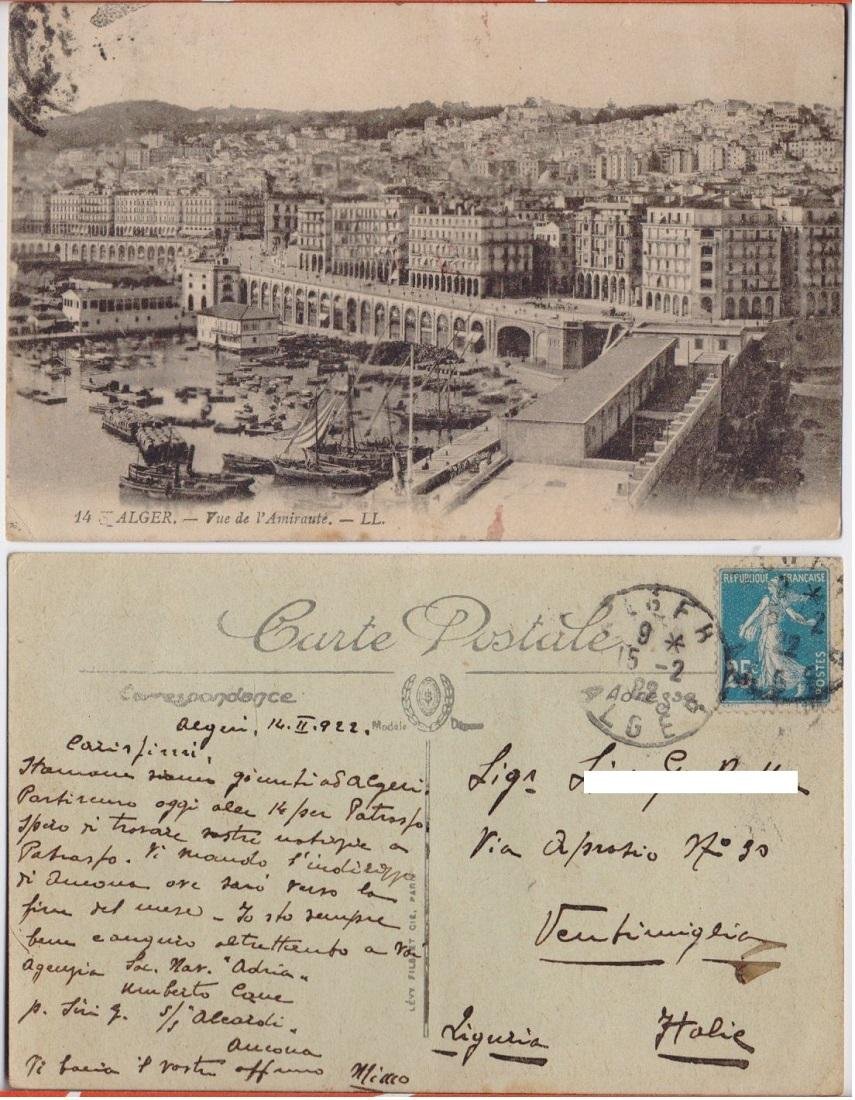 14 ALGER. — Vue de l'Amirauté. — LL.
Carte Postale
Correspondance
Adresse
Modèle Déposé
RÉPUBLIQUE FRANÇAISE
25c
POSTES
ALGER
9 *
15 -2
22
ALGER
Algeri, 14.II.922.
Carissimi,
Stamane siamo giunti ad Algeri.
Partiremo oggi alle 14 per Patrasso
Spero di trovare vostre notizie a
Patrasso. Vi mando l'indirizzo
di Ancona ove sarò verso la
fine del mese – Io sto sempre
bene e auguro altrettanto a Voi
Agenzia Soc. Nav. "Adria"
Umberto Cave
p. Siri G. S/S "Alcardi"
Ancona
Vi bacia il vostro aff.mo
LÉVY FILS ET CIE, PARIS
Sigr
Via Aprosio No 30
Ventimiglia
Liguria Italie